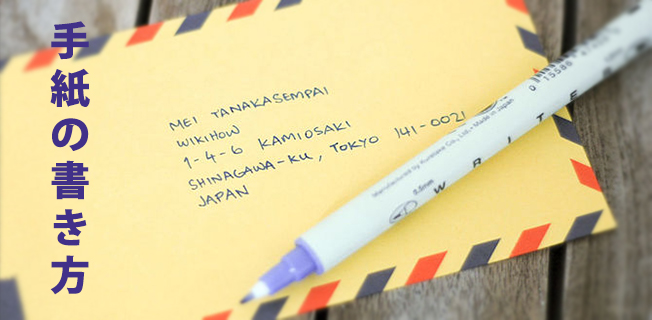 手紙の書き方
MEI TANAKASEMPAI
WIKIHOW
1-4-6 KAMIOSAKI
SHINAGAWA-KU, TOKYO 141-0021
JAPAN
Manufactured by Kuretake Co., Ltd. Made in Japan
0.5mm
WRITE